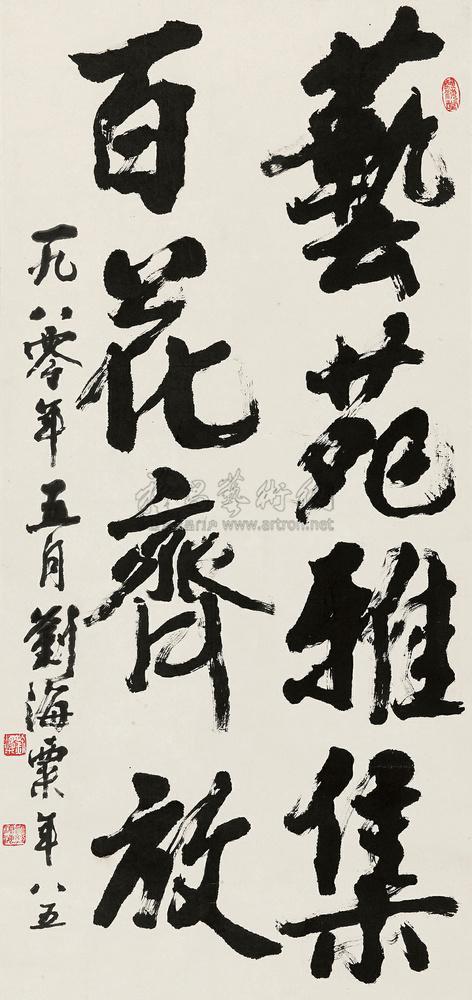 藝苑雅集
百花齊放
一九八零年五月劉海粟年八五
雅昌藝術網
www.artron.net